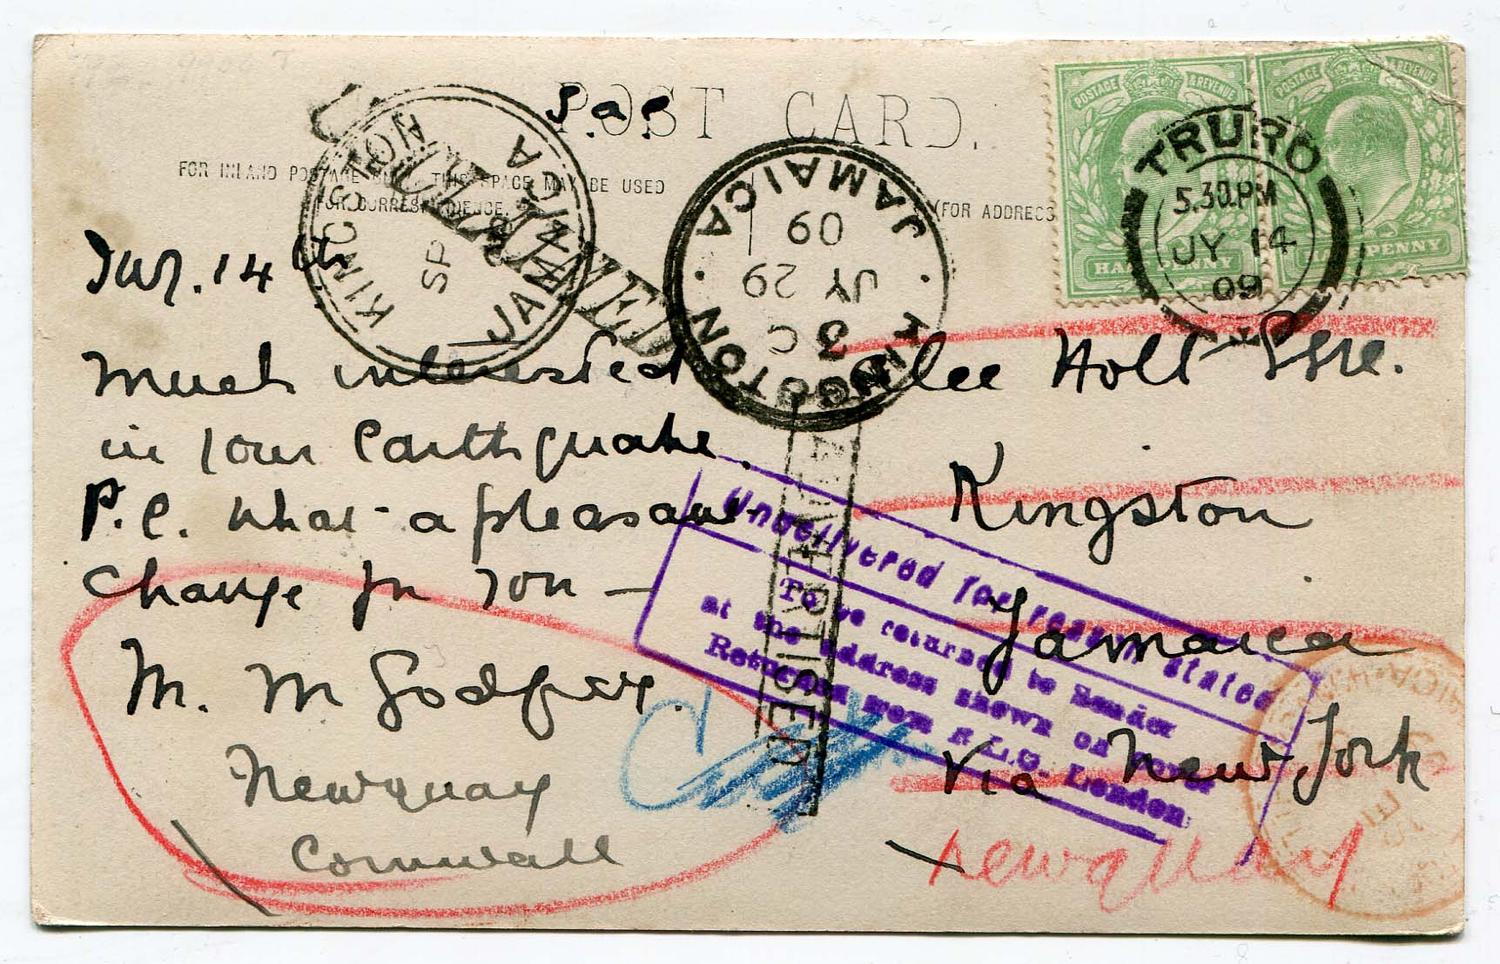 POST CARD.
FOR INLAND POSTAGE ONLY THIS SPACE MAY BE USED
FOR CORRESPONDENCE.
(FOR ADDRESS
POSTAGE & REVENUE
HALFPENNY
POSTAGE & REVENUE
HALFPENNY
TRURO
5.30.PM
JY 14
09
KINGSTON
JAMAICA
SP
KINGSTON · JAMAICA ·
3C
JY 29
09
14th
Much interested
in your Earthquake.
P.C. What a pleasant
change for you —
M. M Godfrey.
Newquay
Cornwall
Lee Holt Esre.
Kingston
Jamaica
Via New York
Newquay
ADVERTISED
Undelivered for reason stated
To be returned to Sender
at the address shown on cover
Returned from R.L.O. London